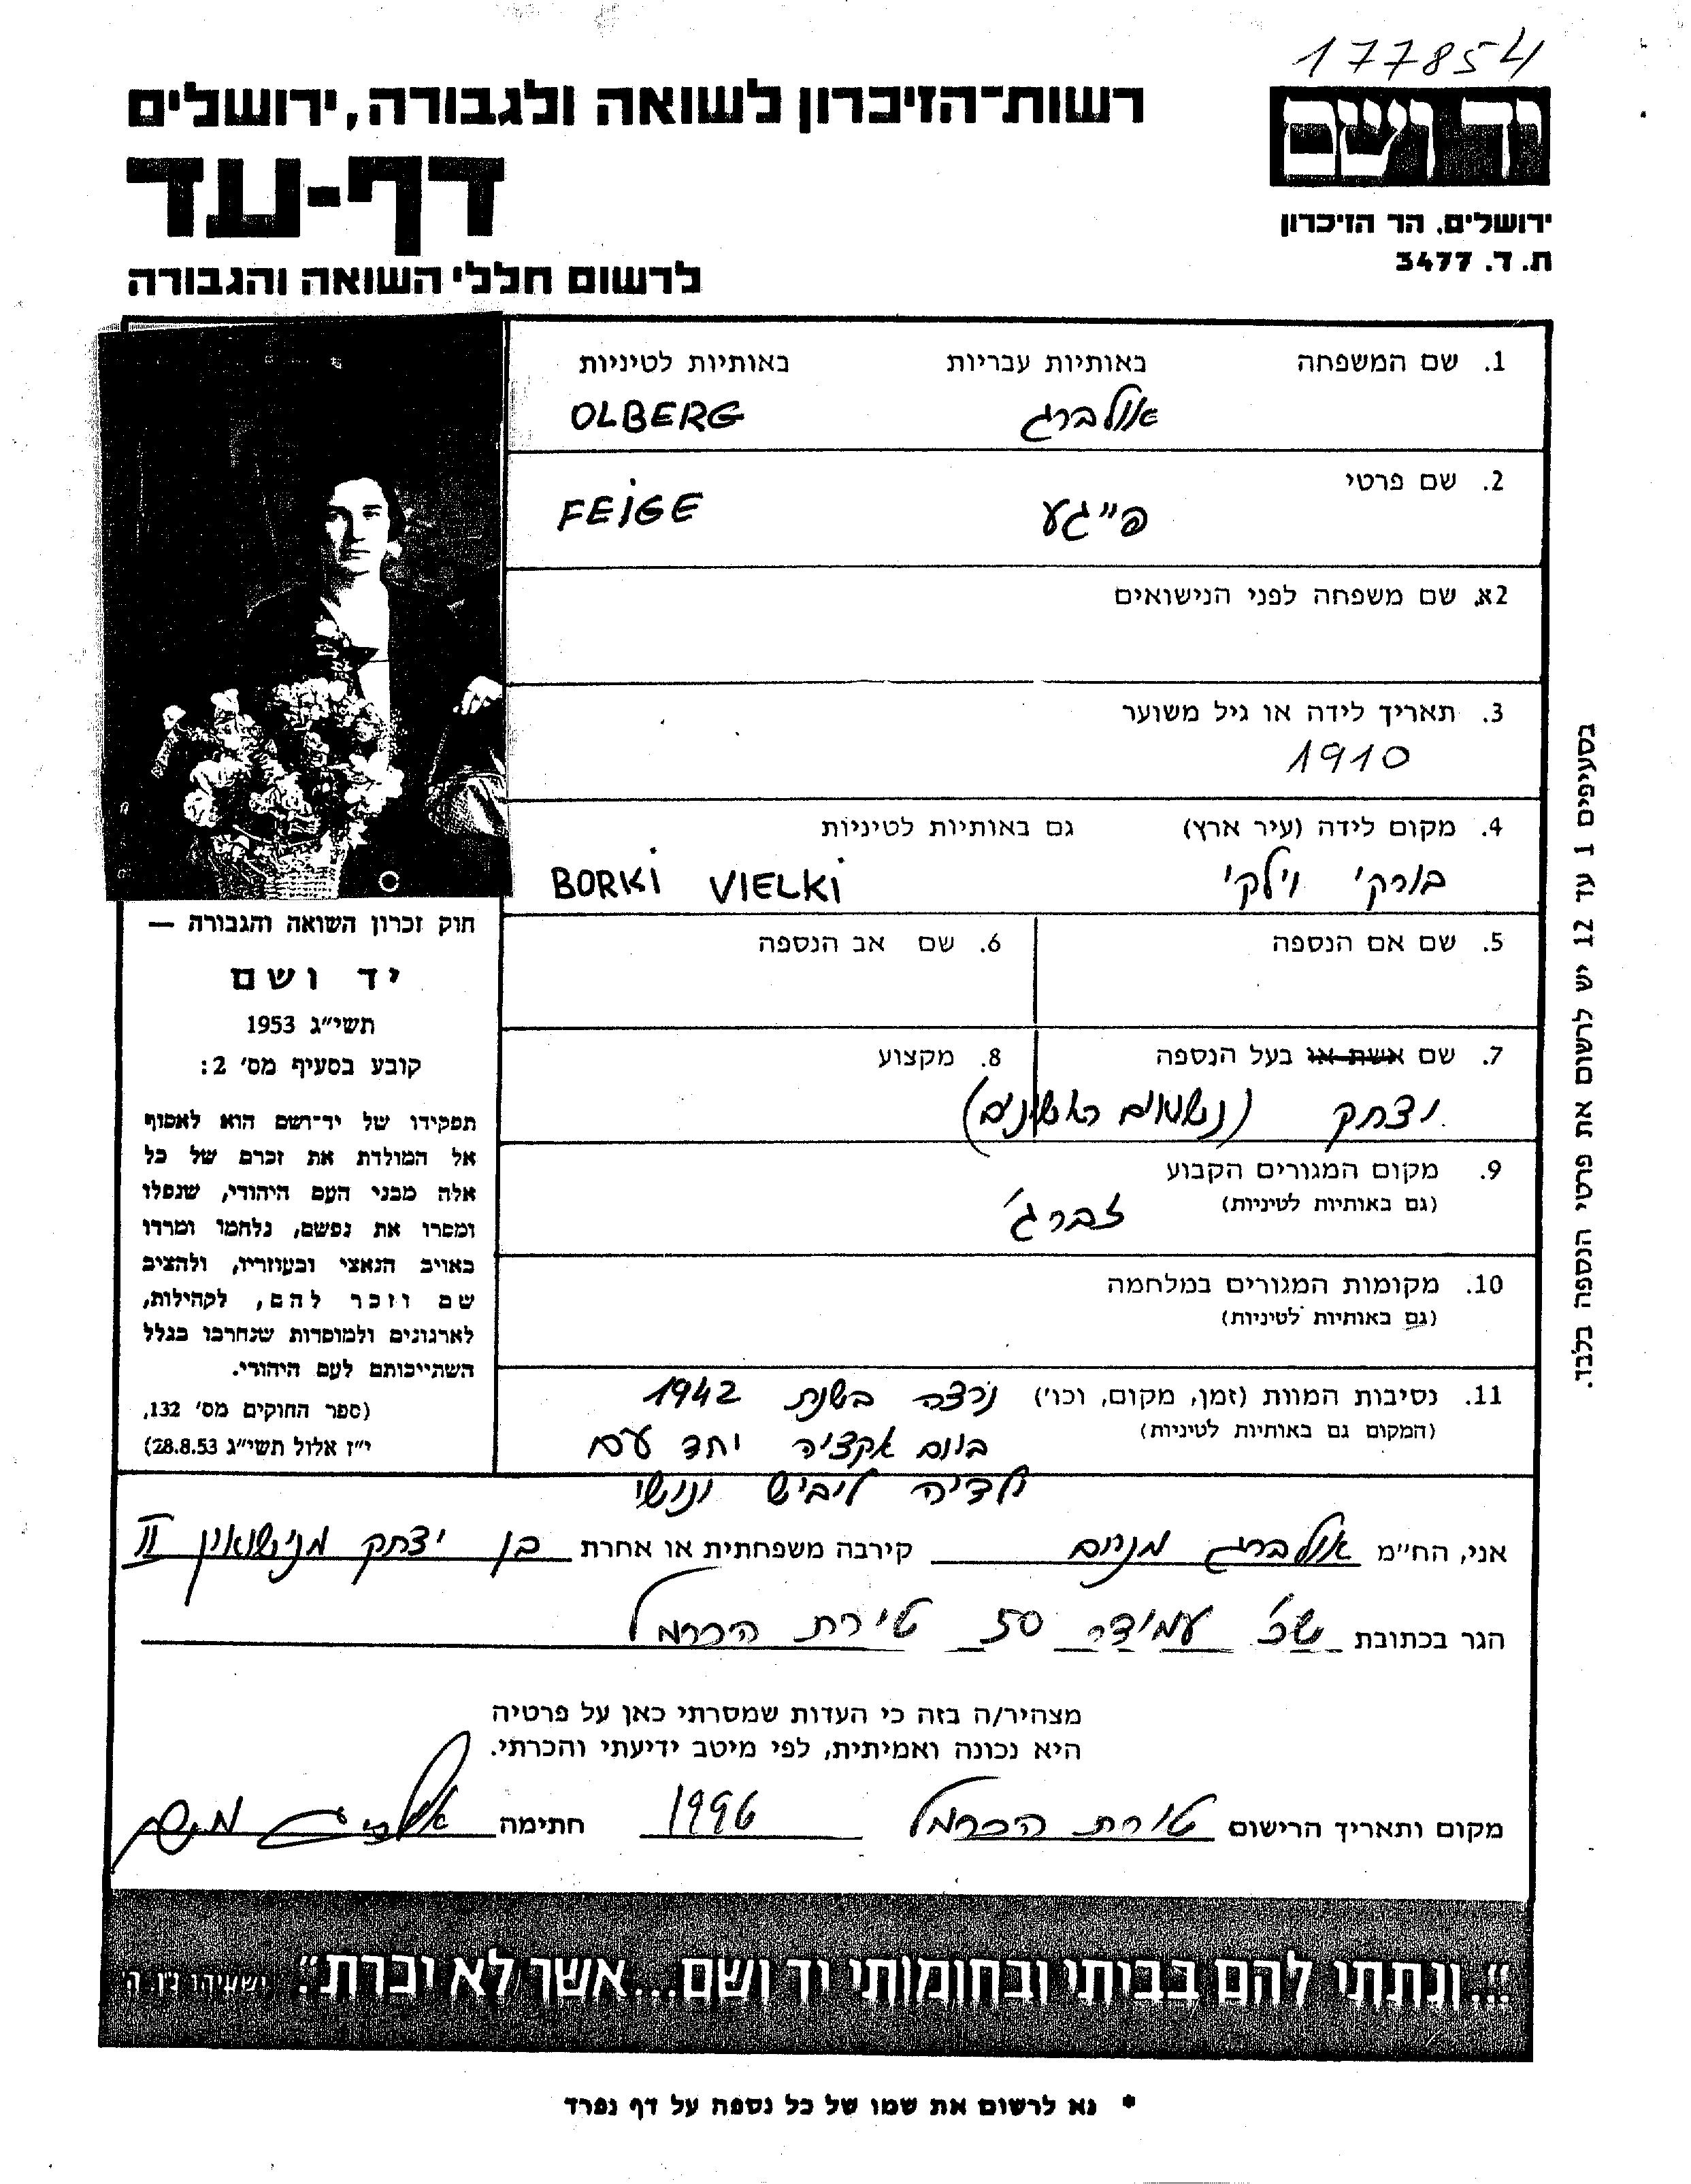 177854
יד ושם
רשות־הזיכרון לשואה ולגבורה, ירושלים
דף-עד
לרשום חללי השואה והגבורה
ירושלים, הר הזיכרון
ת. ד. 3477
1. שם המשפחה באותיות עבריות באותיות לטיניות
אולברג OLBERG
2. שם פרטי
פייגע FEIGE
2א. שם משפחה לפני הנישואים
3. תאריך לידה או גיל משוער
1910
4. מקום לידה (עיר ארץ) גם באותיות לטיניות
בורקי וילקי BORKI VIELKI
5. שם אם הנספה 6. שם אב הנספה
7. שם אשת או בעל הנספה 8. מקצוע
יצחק (נשואים ראשונים)
9. מקום המגורים הקבוע
(גם באותיות לטיניות)
זברג'
10. מקומות המגורים במלחמה
(גם באותיות לטיניות)
11. נסיבות המוות (זמן, מקום, וכו') נרצה בשנת 1942
(המקום גם באותיות לטיניות)
אקציה יחד עם
ילדיה ליביש ונושי
חוק זכרון השואה והגבורה —
יד ושם
תשי״ג 1953
קובע בסעיף מס׳ 2:
תפקידו של יד־ושם הוא לאסוף
אל המולדת את זכרם של כל
אלה מבני העם היהודי, שנפלו
ומסרו את נפשם, נלחמו ומרדו
באויב הנאצי ובעוזריו, ולהציב
שם וזכר להם, לקהילות,
לארגונים ולמוסדות שנחרבו בגלל
השתייכותם לעם היהודי.
(ספר החוקים מס׳ 132,
י״ז אלול תשי״ג 28.8.53)
בסעיפים 1 עד 12 יש לרשום את פרטי הנספה בלבד.
אני, הח״מ אולברג מנחם קירבה משפחתית או אחרת בן יצחק מנישואין II
הגר בכתובת שכ' עמידר 50 טירת הכרמל
מצהיר/ה בזה כי העדות שמסרתי כאן על פרטיה
היא נכונה ואמיתית, לפי מיטב ידיעתי והכרתי.
מקום ותאריך הרישום טירת הכרמל 1996 חתימה
״...ונתתי להם בביתי ובחומותי יד ושם...אשר לא יכרת״. ישעיהו נ״ו, ה׳
* נא לרשום את שמו של כל נספה על דף נפרד